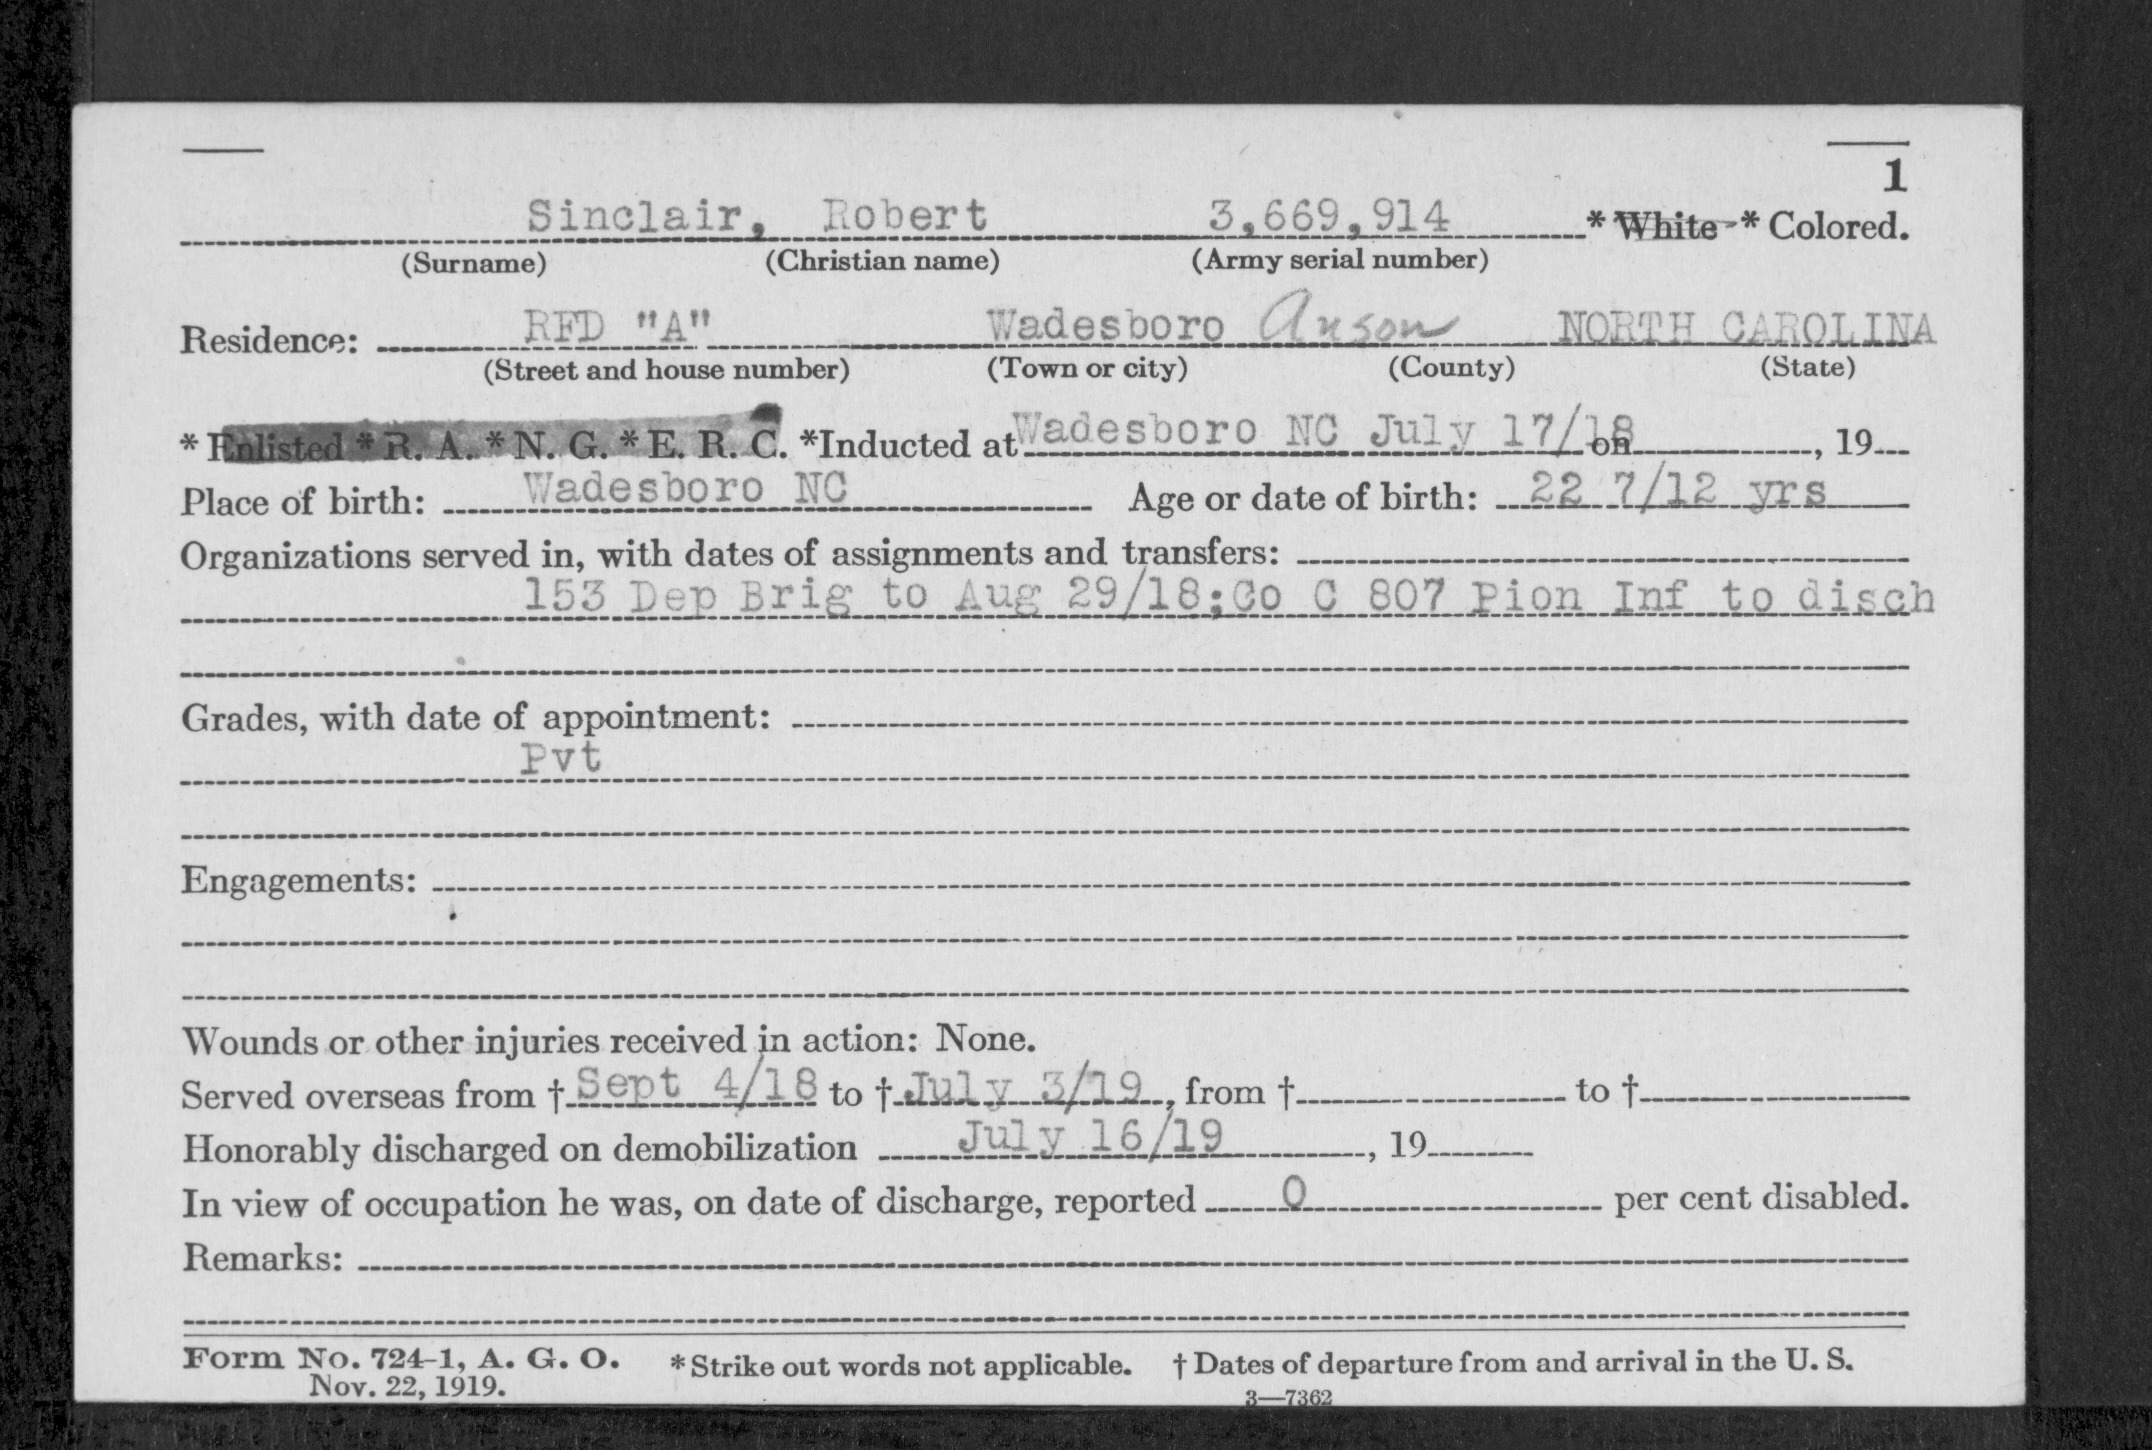 1
Sinclair, Robert 3,669,914 * White * Colored.
(Surname) (Christian name) (Army serial number)
Residence: RFD "A" Wadesboro Anson NORTH CAROLINA
(Street and house number) (Town or city) (County) (State)
* Enlisted * R. A. * N. G. * E. R. C. *Inducted at Wadesboro NC July 17/18 on , 19
Place of birth: Wadesboro NC Age or date of birth: 22 7/12 yrs
Organizations served in, with dates of assignments and transfers:
153 Dep Brig to Aug 29/18;Co C 807 Pion Inf to disch
Grades, with date of appointment:
Pvt
Engagements:
Wounds or other injuries received in action: None.
Served overseas from † Sept 4/18 to † July 3/19 , from † to †
Honorably discharged on demobilization July 16/19 , 19
In view of occupation he was, on date of discharge, reported 0 per cent disabled.
Remarks:
Form No. 724-1, A. G. O. * Strike out words not applicable. † Dates of departure from and arrival in the U. S.
Nov. 22, 1919. 3—7362